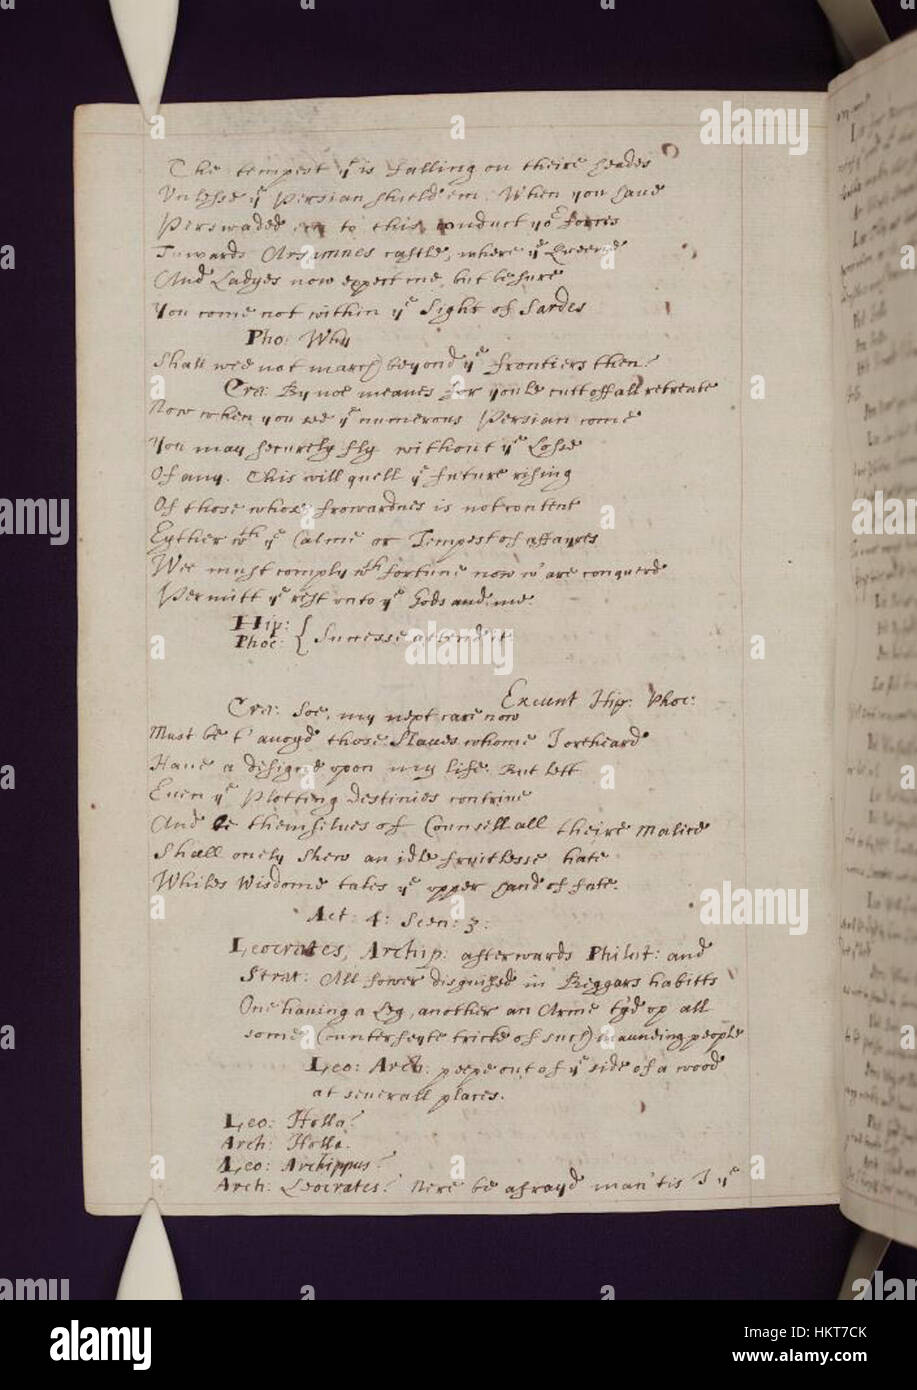 The tempest yt is falling on theire heades
Unlesse ye Persian shield em. When you have
Perswaded em to this, conduct yor forces
Towards Arsamnes castle, where ye Queene
And Ladyes now expect me, but be sure
You come not within ye Sight of Sardes
Pho: Why
Shall wee not march beyond ye frontiers then?
Cra: By noe meanes for youle cutt off all retreate
Now when you see ye numerous Persian come
You may securely fly without ye Losse
Of any. This will quell ye future rising
Of those whose frowardnes is not content
Eyther wth ye Calme or Tempest of affayres
Wee must comply wth fortune now w' are conquerd
Permitt ye rest unto ye Gods and me.
Hip:
Phoc: { Successe attend it
Exeunt Hip: Phoc:
Cra: Soe, my next care now
Must be t' avoyd those Slaves whome I oreheard
Have a designe upon my life. But lett
Even ye Plotting destinies contrive
And be themselves of Counsell all theire malice
Shall onely shew an idle fruitlesse hate
Whiles Wisdome takes ye upper hand of fate.
Act: 4: Scen: 3:
Leocrates, Archip: afterwards Philot: and
Strat: All fower disguised in Beggars habitts
One having a Leg, another an Arme ty'd up all
some Counterfeyte tricke of such maunding people
Leo: Arch: peepe out of ye side of a wood
at severall places.
Leo: Holla?
Arch: Holla.
Leo: Archippus?
Arch: Leocrates? Nere be afrayd man 'tis I ye
alamy
Image ID: HKT7CK
www.alamy.com